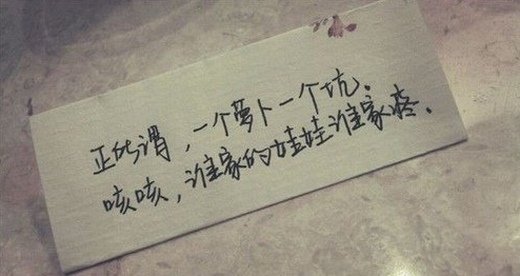 正所谓，一个萝卜一个坑.
咳咳，谁家的娃娃谁家疼.